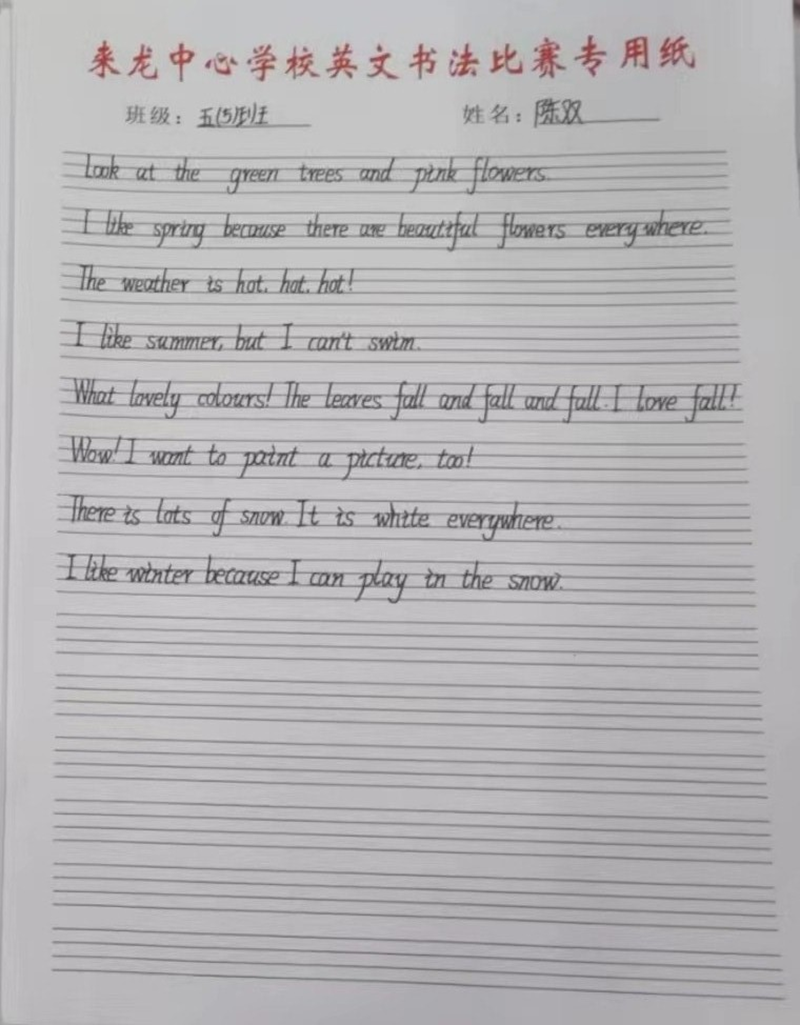 来龙中心学校英文书法比赛专用纸
班级：五(5)班 姓名：陈双
Look at the green trees and pink flowers.
I like spring because there are beautiful flowers everywhere.
The weather is hot, hot, hot!
I like summer, but I can't swim.
What lovely colours! The leaves fall and fall and fall. I love fall!
Wow! I want to paint a picture, too!
There is lots of snow. It is white everywhere.
I like winter because I can play in the snow.